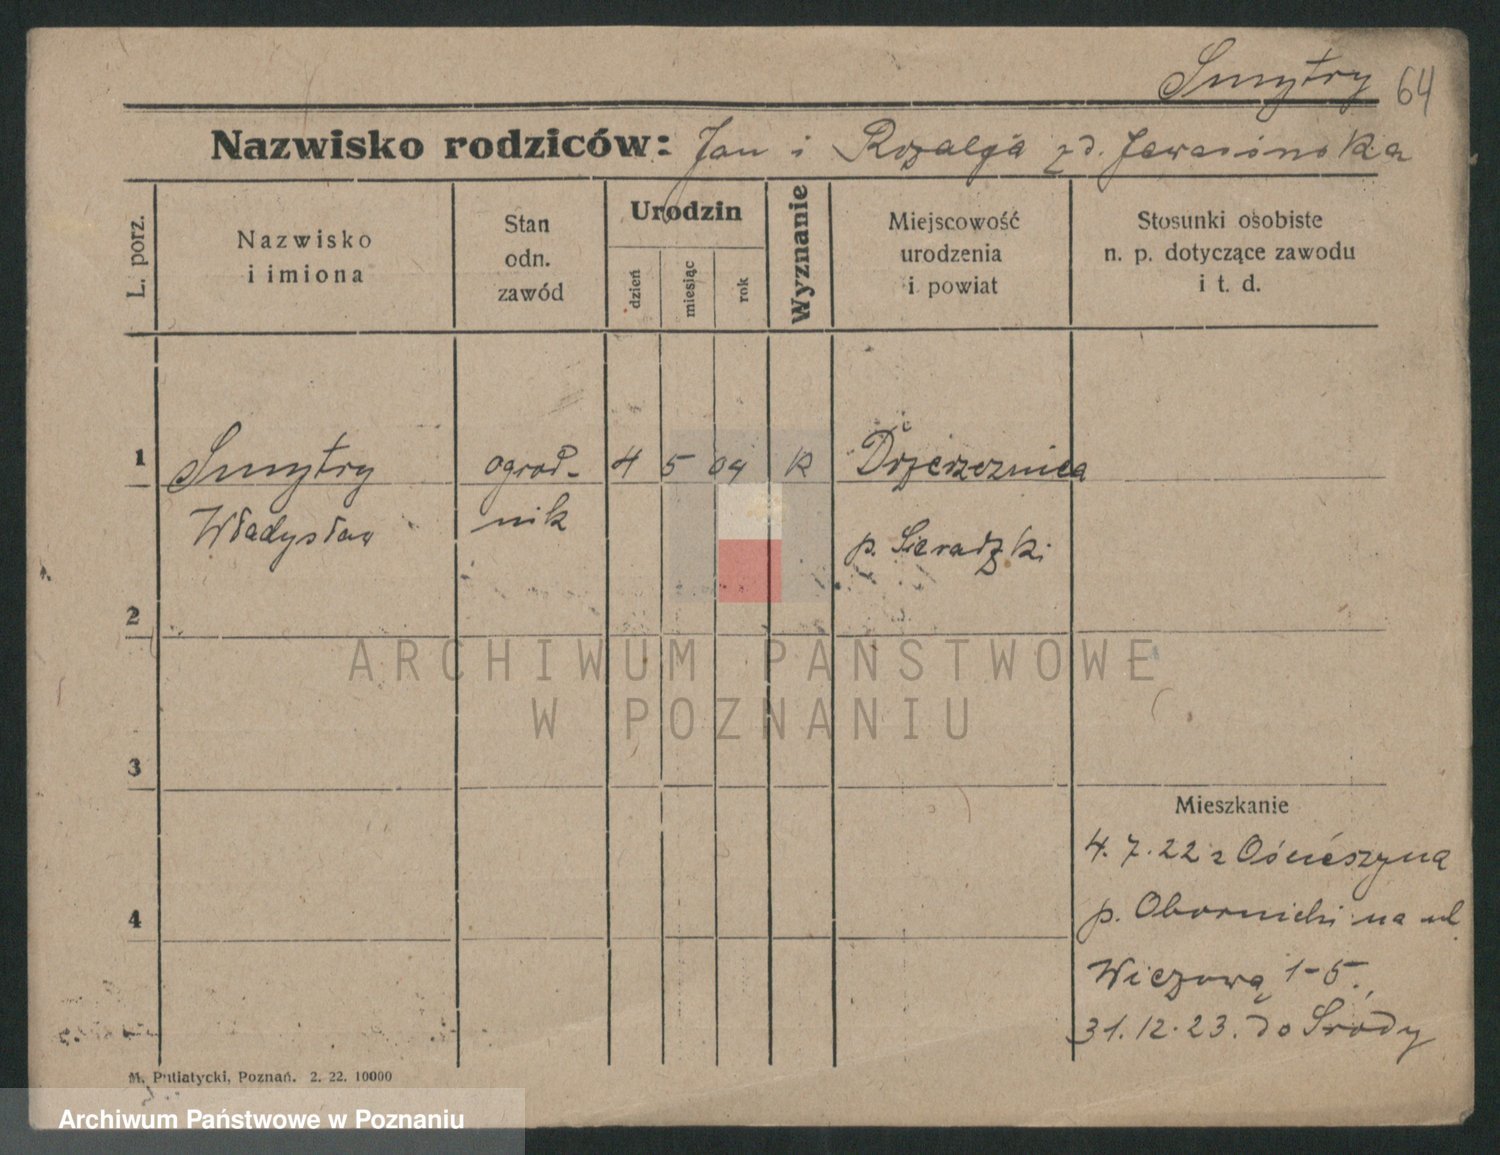 Smytry 64
Nazwisko rodziców: Jan i Rozalja zd.
L. porz.
Nazwisko
i imiona
Stan
odn.
zawód
Urodzin
dzień
miesiąc
rok
Wyznanie
Miejscowość
urodzenia
i powiat
Stosunki osobiste
n. p. dotyczące zawodu
i t. d.
1 Smytry ogrod- 4 5 04 K
Władysław nik p. Sieradzki
2
3
4
ARCHIWUM PAŃSTWOWE
W POZNANIU
Mieszkanie
4. 7. 22 z
p. Obornicki na ul.
Wieżową 1-5.
31. 12. 23. do Środy
M. Putiatycki, Poznań. 2. 22. 10000
Archiwum Państwowe w Poznaniu